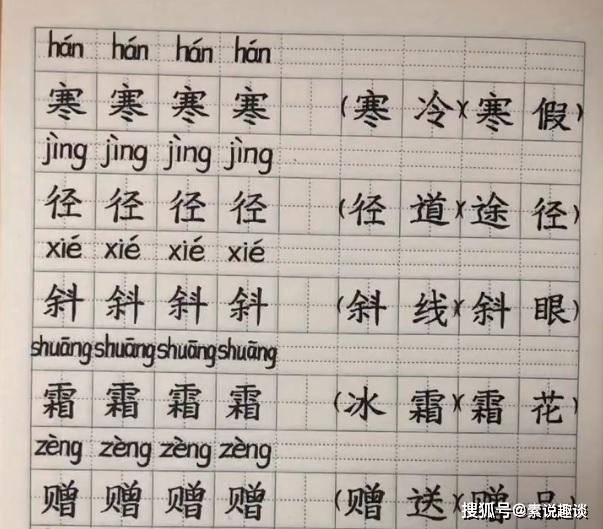 hán hán hán hán
寒 寒 寒 寒 (寒 冷)(寒 假)
jìng jìng jìng jìng
径 径 径 径 (径 道)(途 径)
xié xié xié xié
斜 斜 斜 斜 (斜 线)(斜 眼)
shuāng shuāng shuāng shuāng
霜 霜 霜 霜 (冰 霜)(霜 花)
zèng zèng zèng zèng
赠 赠 赠 赠 (赠 送)(赠
搜狐号@素说趣谈